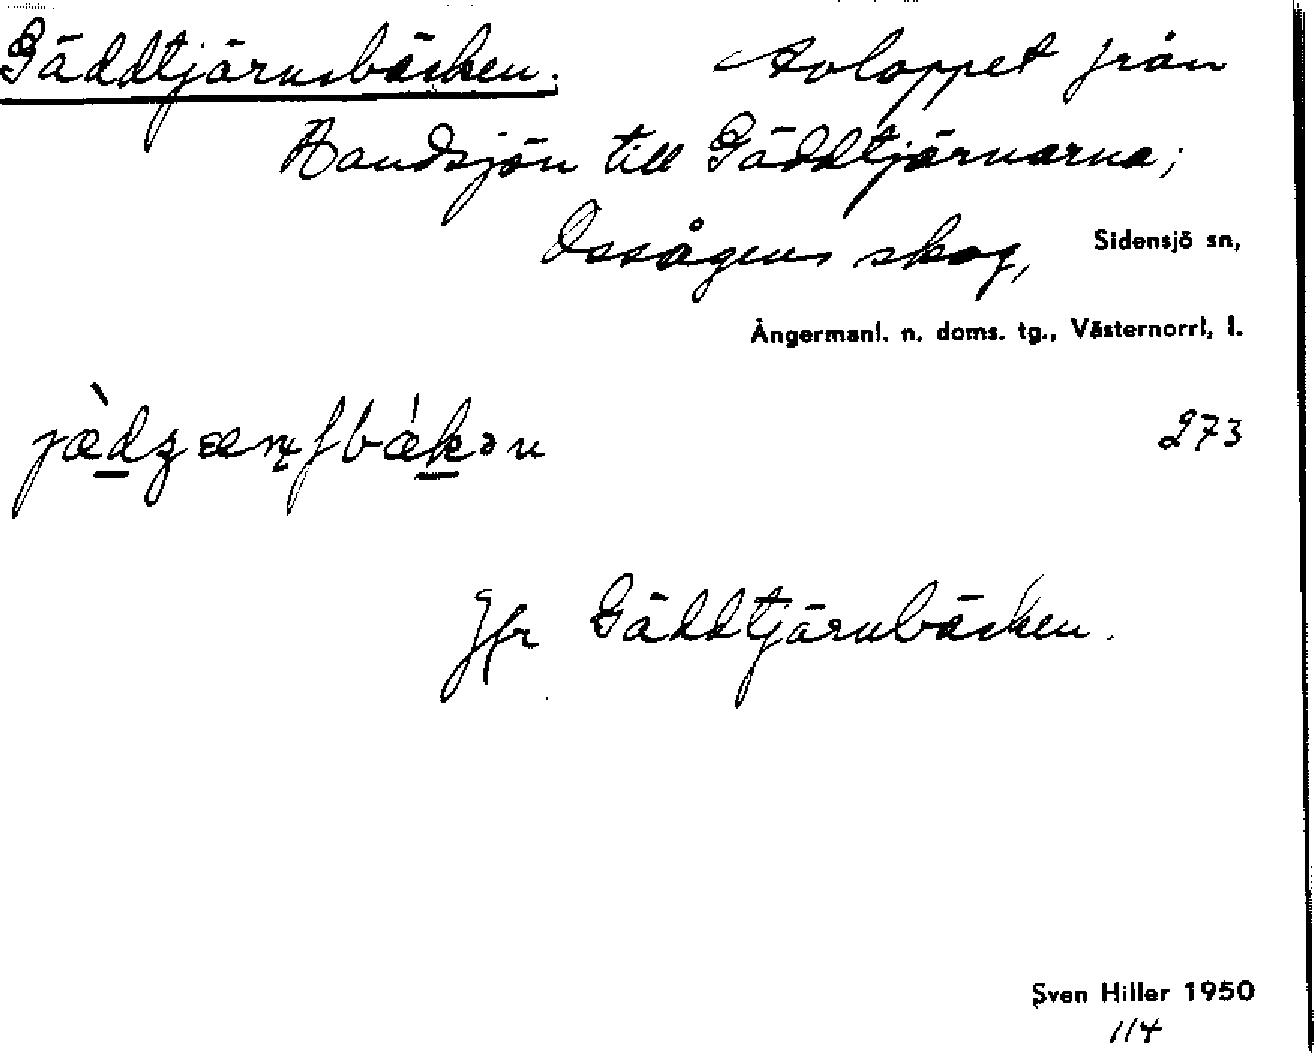 Gäddtjärnsbäcken. Avloppet från
Handsjön till Gäddtjärnarna;
skog, Sidensjö sn,
Ångermanl. n. doms. tg., Västernorrl. l.
273
Jfr Gäddtjärnbäcken.
Sven Hiller 1950
114